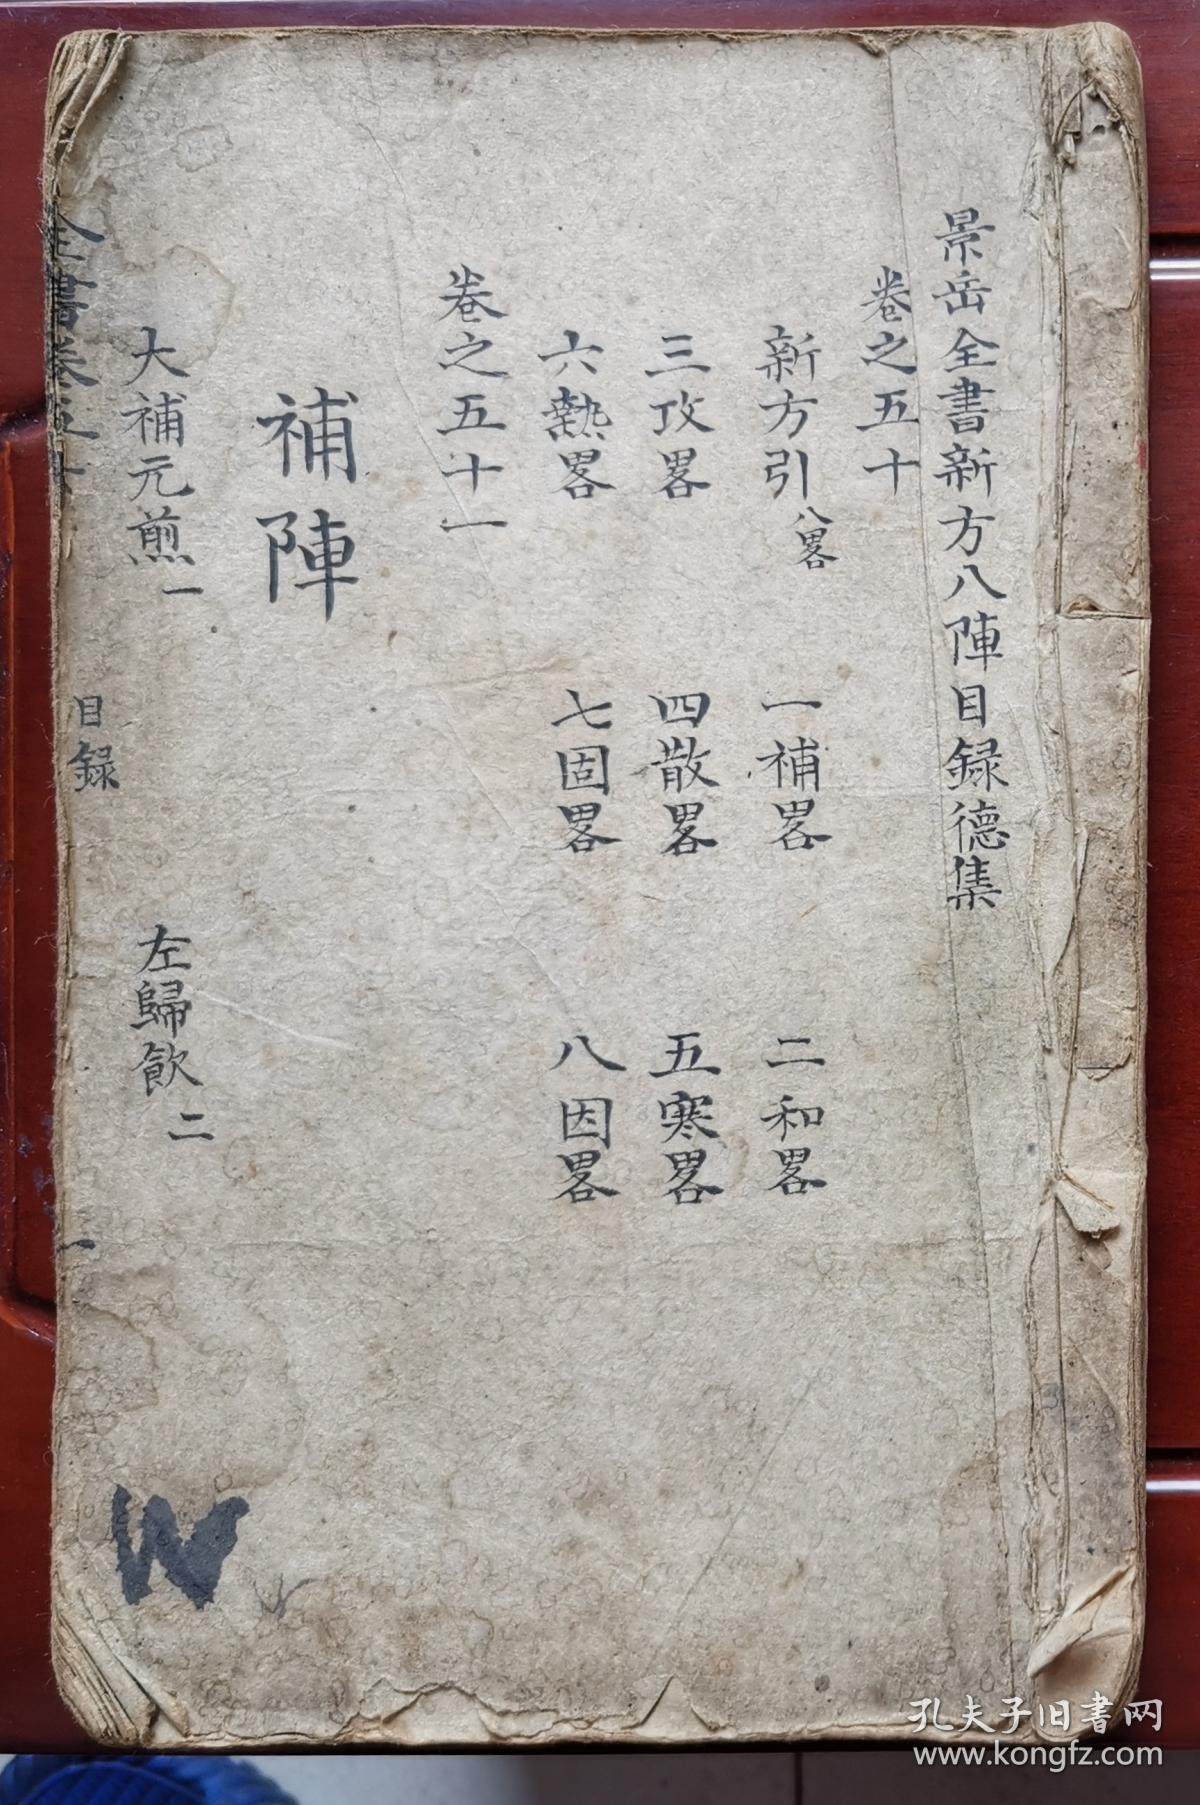 景岳全書新方八陣目録德集
卷之五十
新方引八畧 一補畧 二和畧
三攻畧 四散畧 五寒畧
六熱畧 七固畧 八因畧
卷之五十一
補陣
大補元煎一 左歸飲二
全書卷五十 目録 一
W
孔夫子旧书网
www.kongfz.com